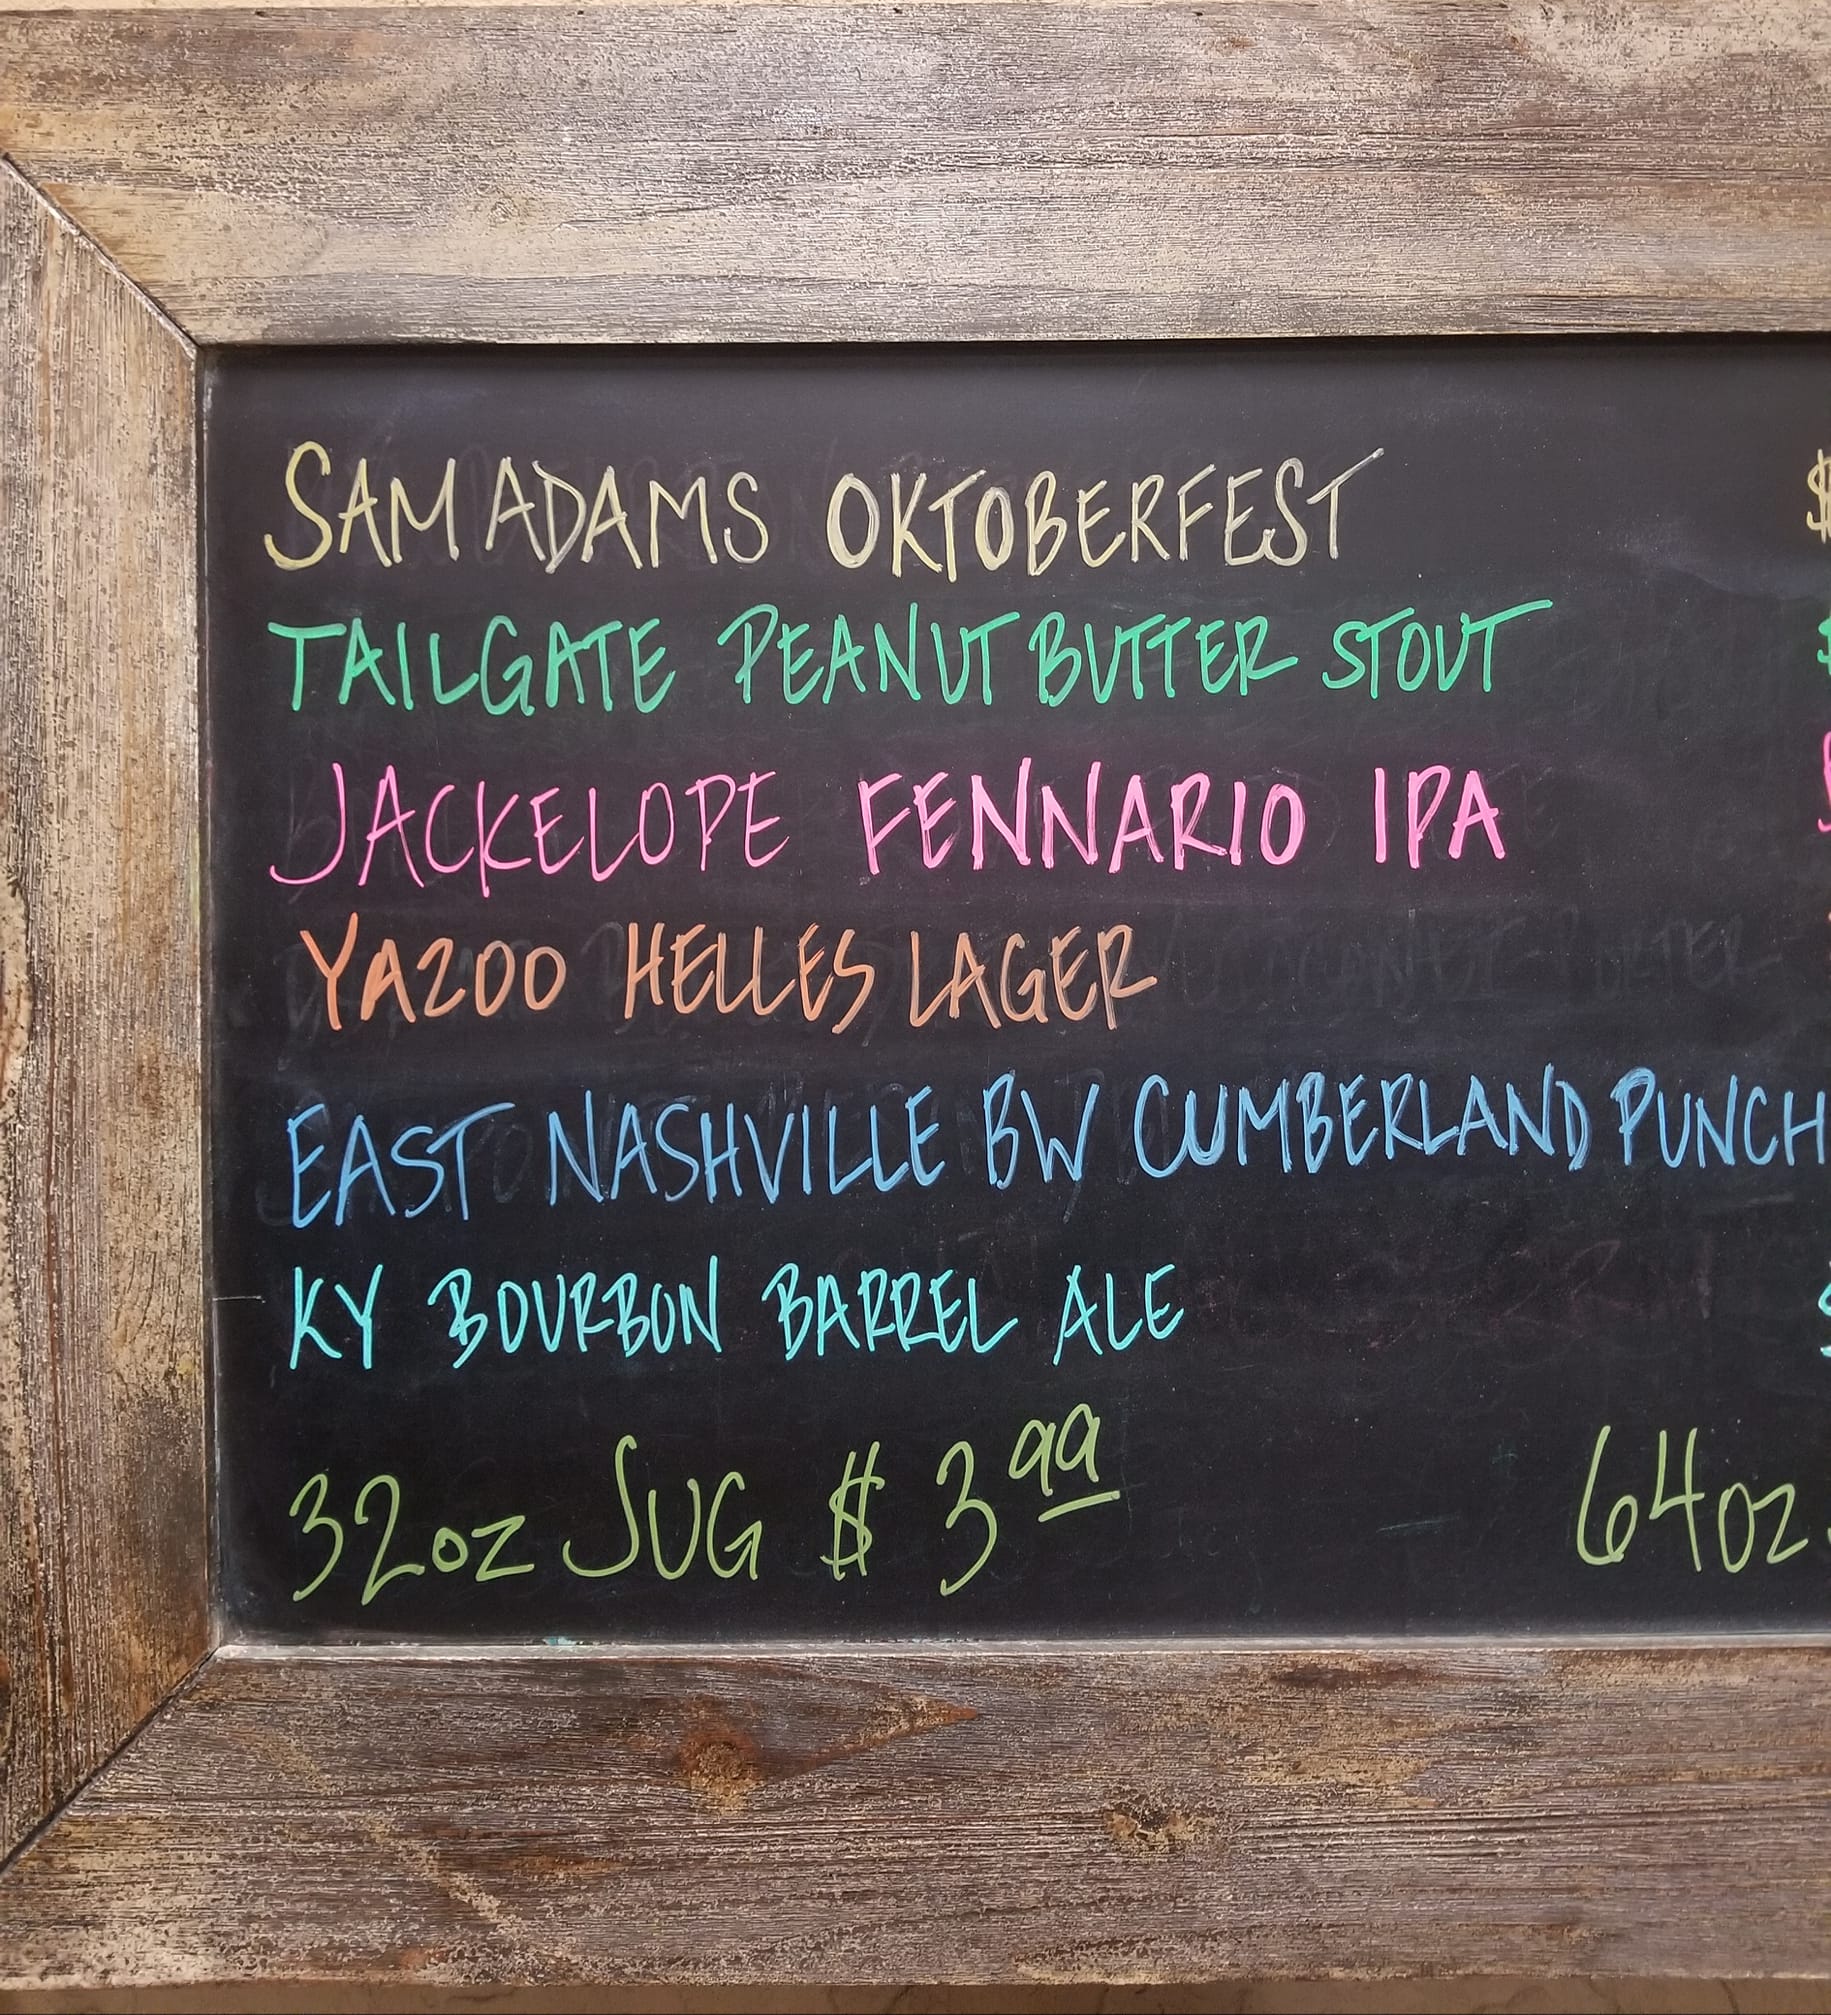 SAM ADAMS OKTOBERFEST $
TAILGATE PEANUT BUTTER STOUT
JACKELOPE FENNARIO IPA
YAZOO HELLES LAGER
EAST NASHVILLE BW CUMBERLAND PUNCH
KY BOURBON BARREL ALE
32oz JUG $3.99 64oz